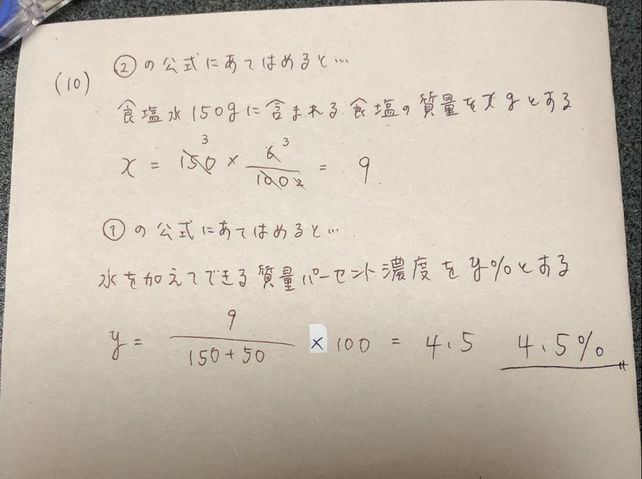 (10) ②の公式にあてはめると…
食塩水150gに含まれる食塩の質量をxgとする
x = 150 × 6/100 = 9
3 3 2
①の公式にあてはめると…
水を加えてできる質量パーセント濃度をy%とする
y = 9/(150+50) × 100 = 4.5 4.5%